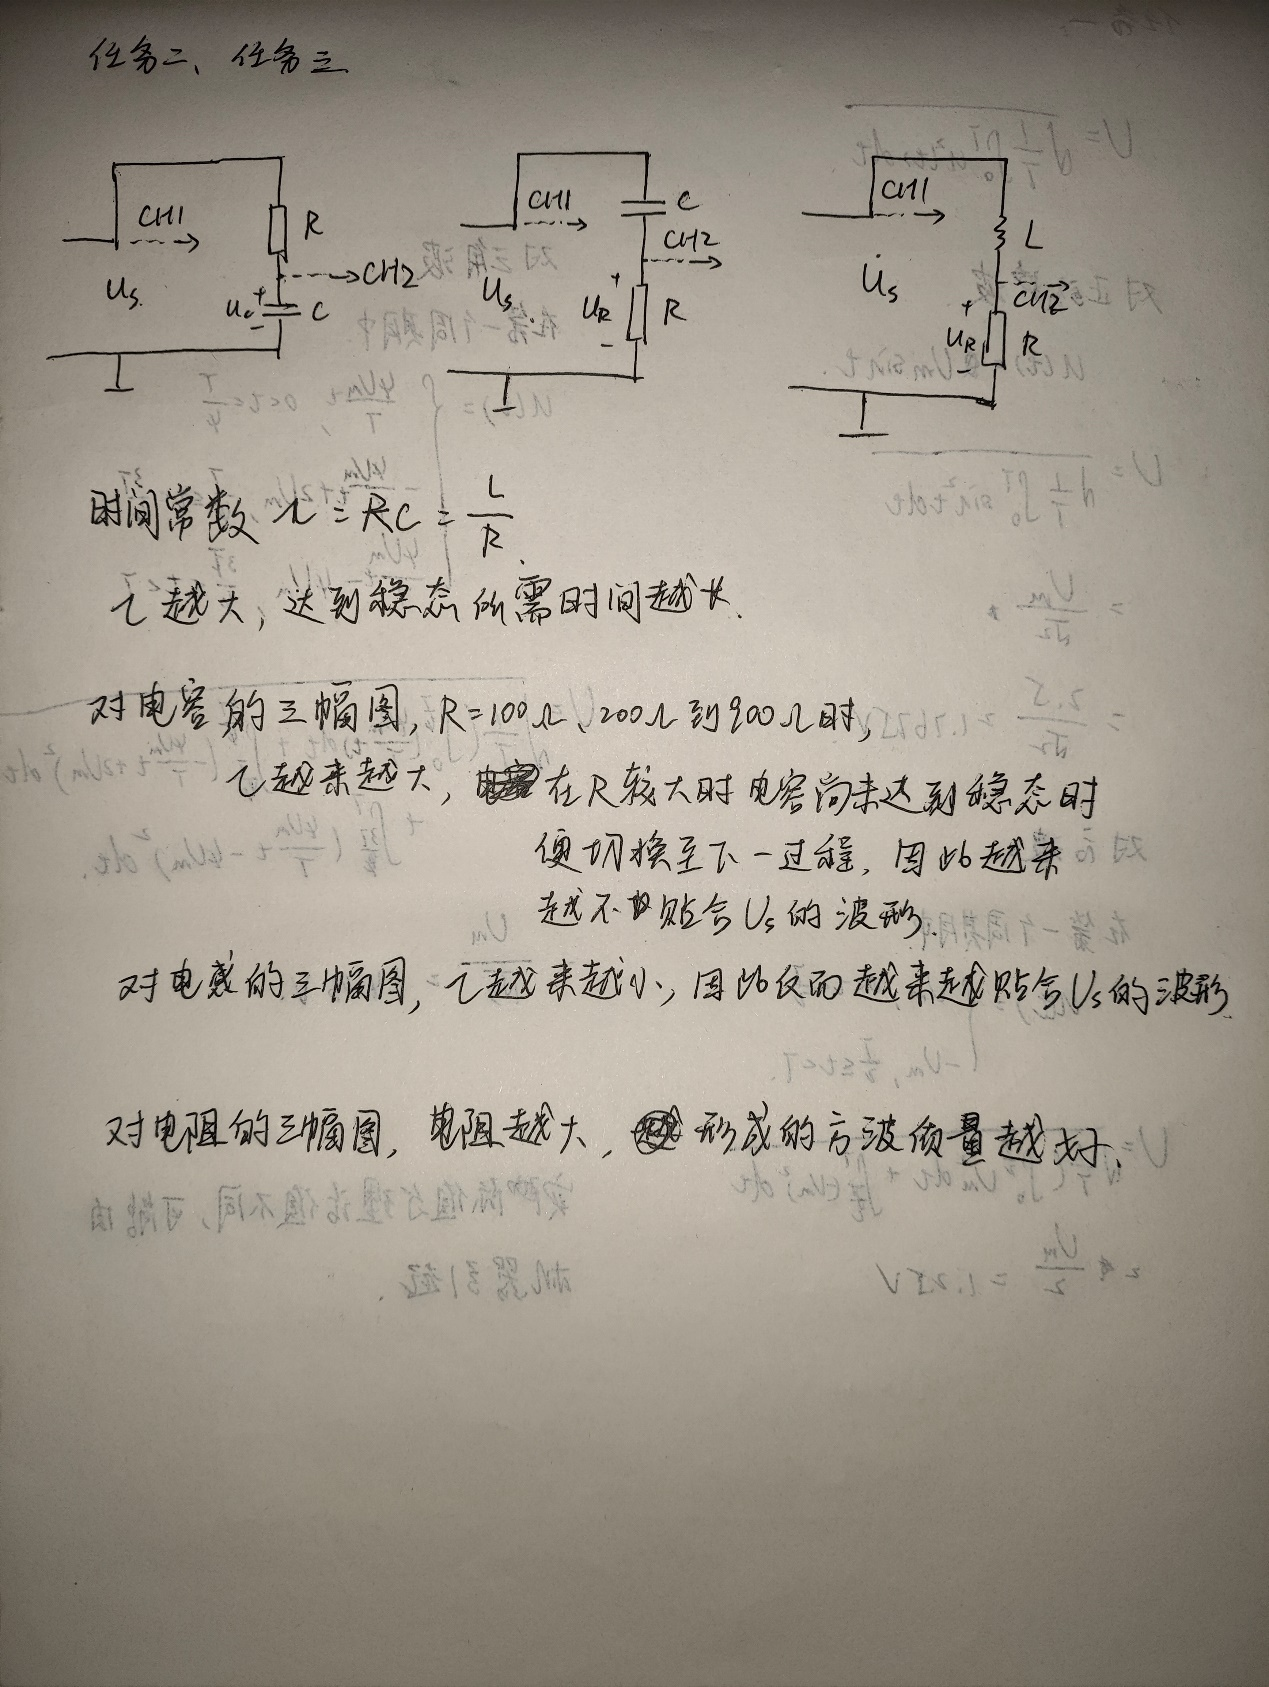 任务二、任务三
CH1
R
CH2
Us
uc
+
-
C
CH1
C
CH2
Us
+
UR
-
R
CH1
L
Us
CH2
+
UR
-
R
时间常数 τ = RC = L/R.
τ越大，达到稳态所需时间越长.
对电容的三幅图，R=100Ω、200Ω到900Ω时，
τ越来越大，在R较大时电容尚未达到稳态时
便切换至下一过程，因此越来
越不贴合Us的波形.
对电感的三幅图，τ越来越小，因此反而越来越贴合Us的波形.
对电阻的三幅图，电阻越大，形成的方波质量越好.